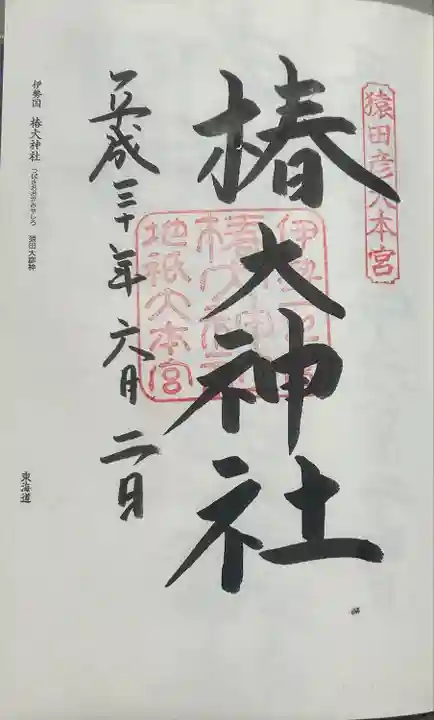 猿田彦大本宮
椿大神社
伊勢一之宮
椿大神社
地祇大本宮
平成三十年六月二日
伊勢国 椿大神社 つばきおおかみやしろ 猿田大神
東海道